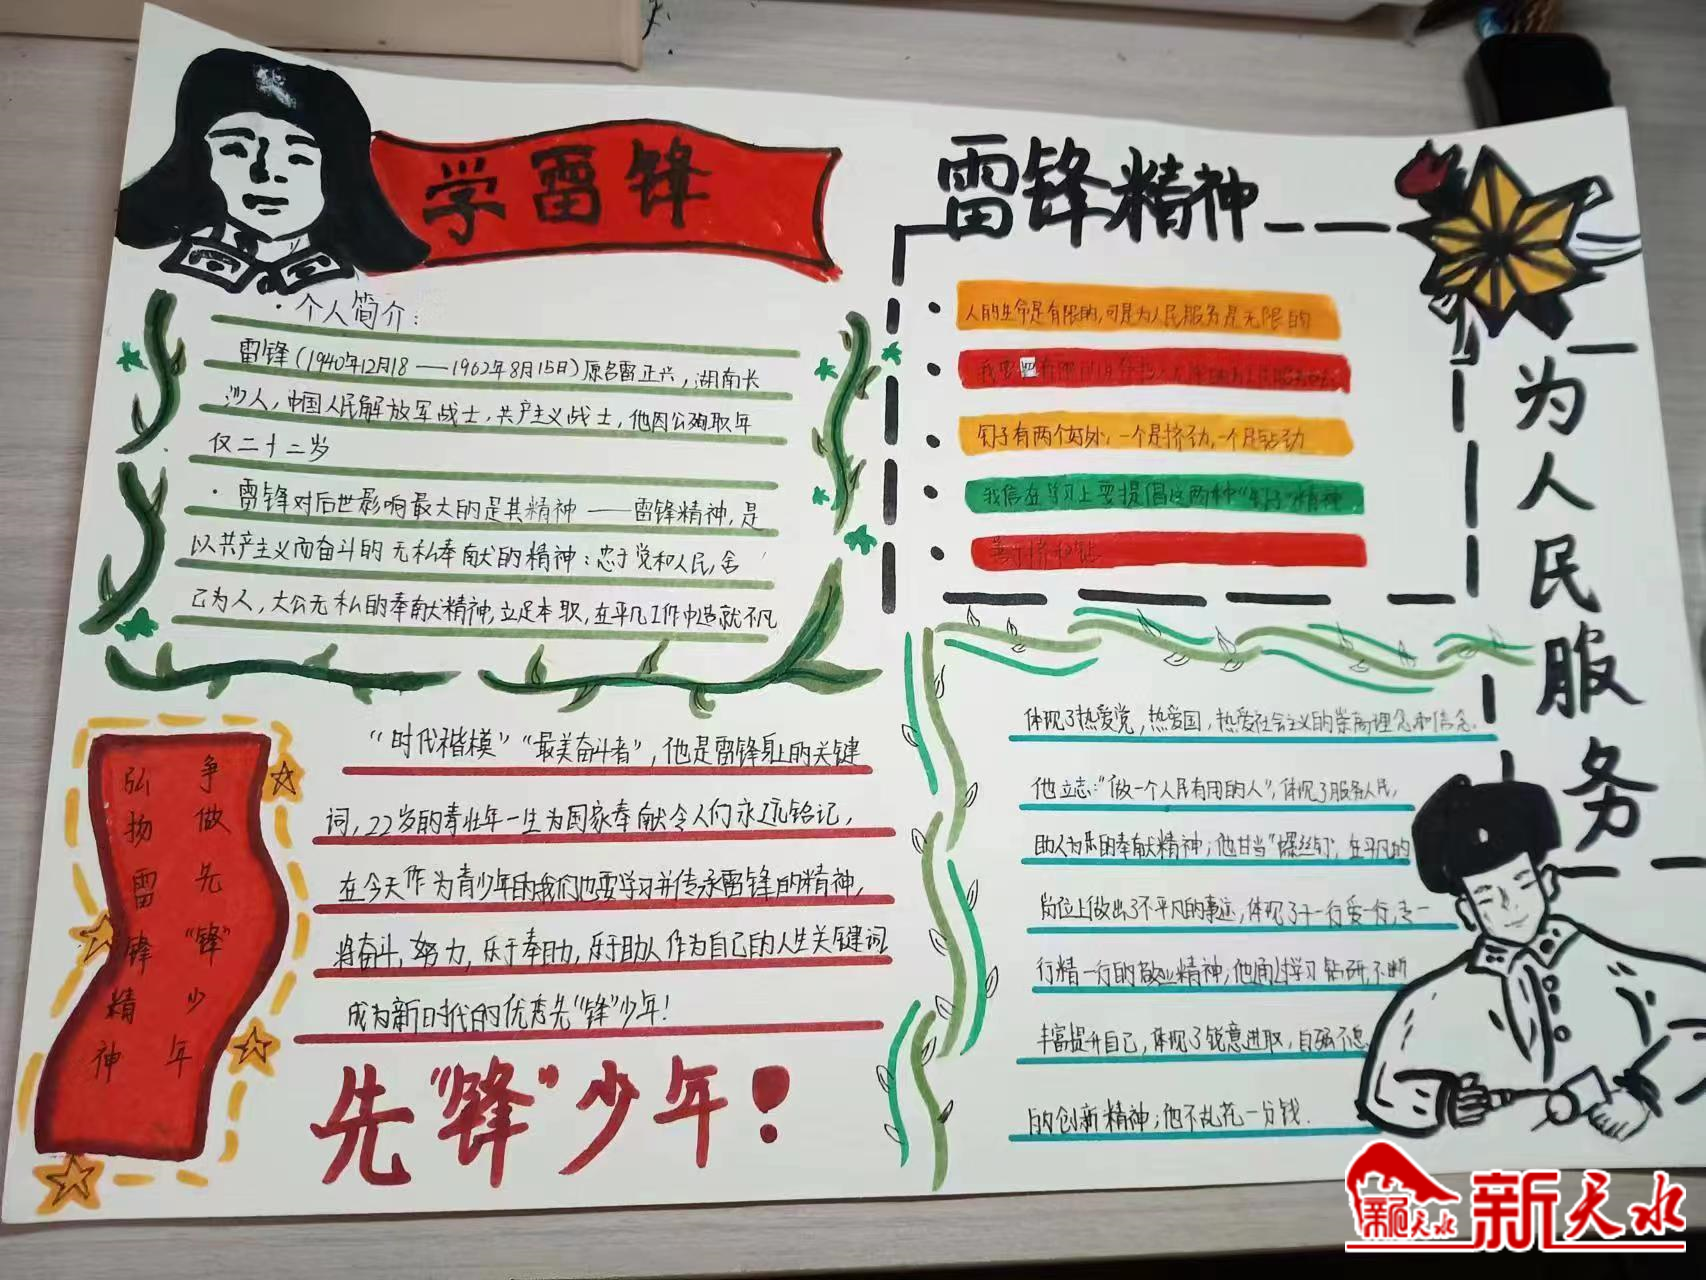 学雷锋
·个人简介：
雷锋（1940年12月18——1962年8月15日）原名雷正兴，湖南长
沙人，中国人民解放军战士，共产主义战士，他因公殉职年
仅二十二岁
·雷锋对后世影响最大的是其精神——雷锋精神，是
以共产主义而奋斗的无私奉献的精神：忠于党和人民，舍
己为人，大公无私的奉献精神，立足本职，在平凡工作中造就不凡
弘扬雷锋精神
争做先“锋”少年
“时代楷模”“最美奋斗者”，他是雷锋身上的关键
词，22岁的青壮年一生为国家奉献令人们永远铭记，
在今天作为青少年的我们也要学习并传承雷锋的精神，
将奋斗，努力，乐于奉助，乐于助人作为自己的人生关键词
成为新时代的优秀先“锋”少年！
先“锋”少年！
雷锋精神
·人的生命是有限的，可是为人民服务是无限的
·我要把有限的
·钉子有两个好处，一个是挤劲，一个是钻劲
·我信在学习上要提倡这两种“钉子”精神
·善于挤和钻
为人民服务
体现了热爱党，热爱国，热爱社会主义的崇高理念和信念．
他立志：“做一个人民有用的人”，体现了服务人民，
助人为乐的奉献精神；他甘当“螺丝钉”，在平凡的
岗位上做出了不平凡的事迹，体现了干一行爱一行，专一
行精一行的敬业精神；他通过学习钻研，不断
丰富提升自己，体现了锐意进取，自强不息
的创新精神；他不乱花一分钱．
新天水
新天水